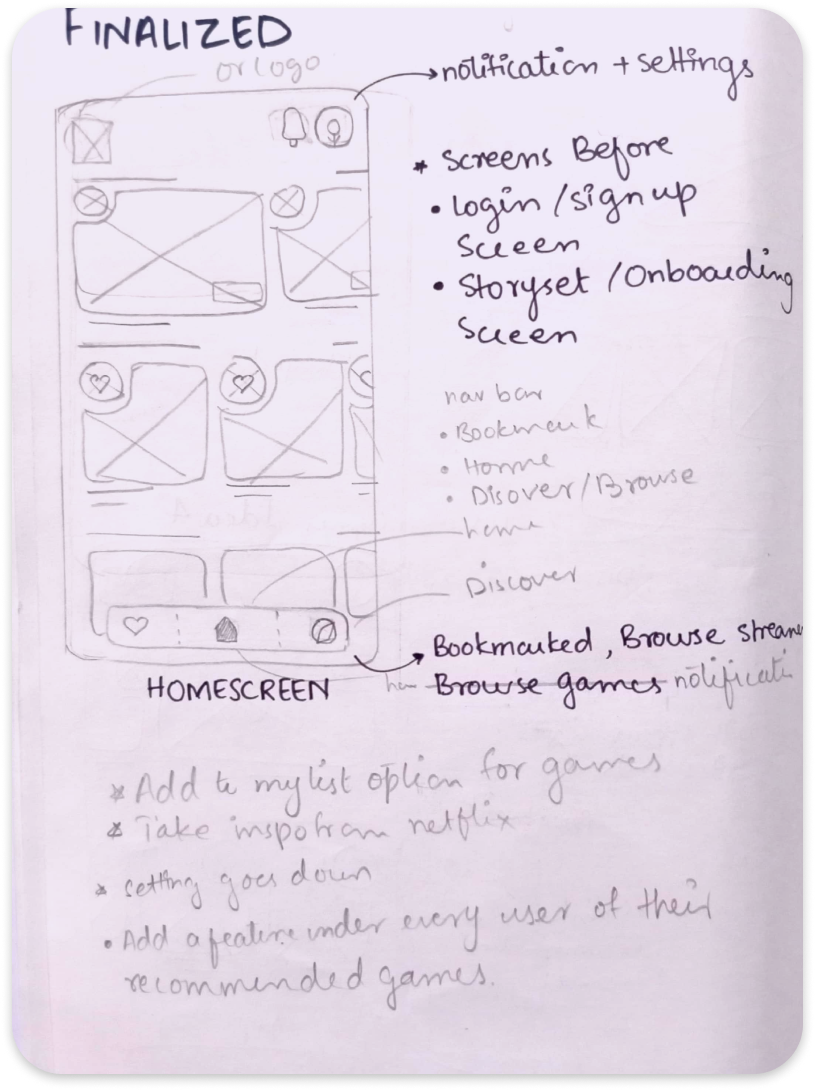 FINALIZED
or logo
notification + settings
* Screens Before
• Login / sign up
Screen
• Storyset / Onboarding
Screen
nav bar
• Bookmark
• Home
• Disover/Browse
home
Discover
Bookmarked, Browse
Browse games
HOMESCREEN
* Add to my list option for games
* Take inspo from netflix
* setting goes down
• Add a feature under every user of their
recommended games.